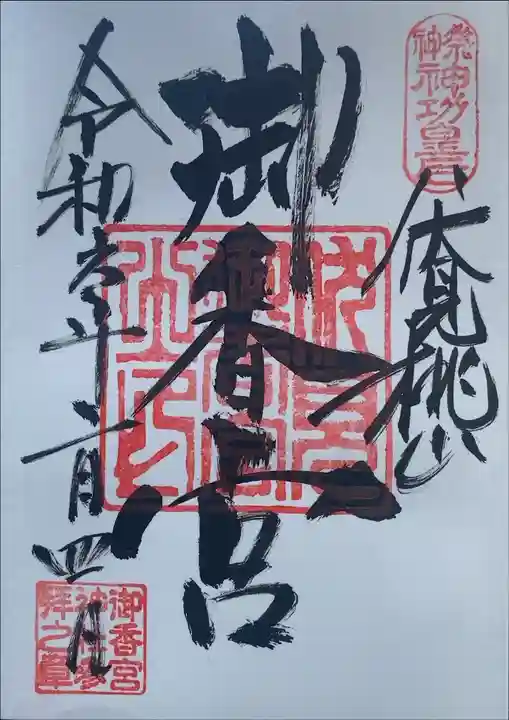 祭神
神功皇后
伏見桃山
御香宮
伏見御香宮之印
令和 年 月四日
御香宮
神社参
拝之章